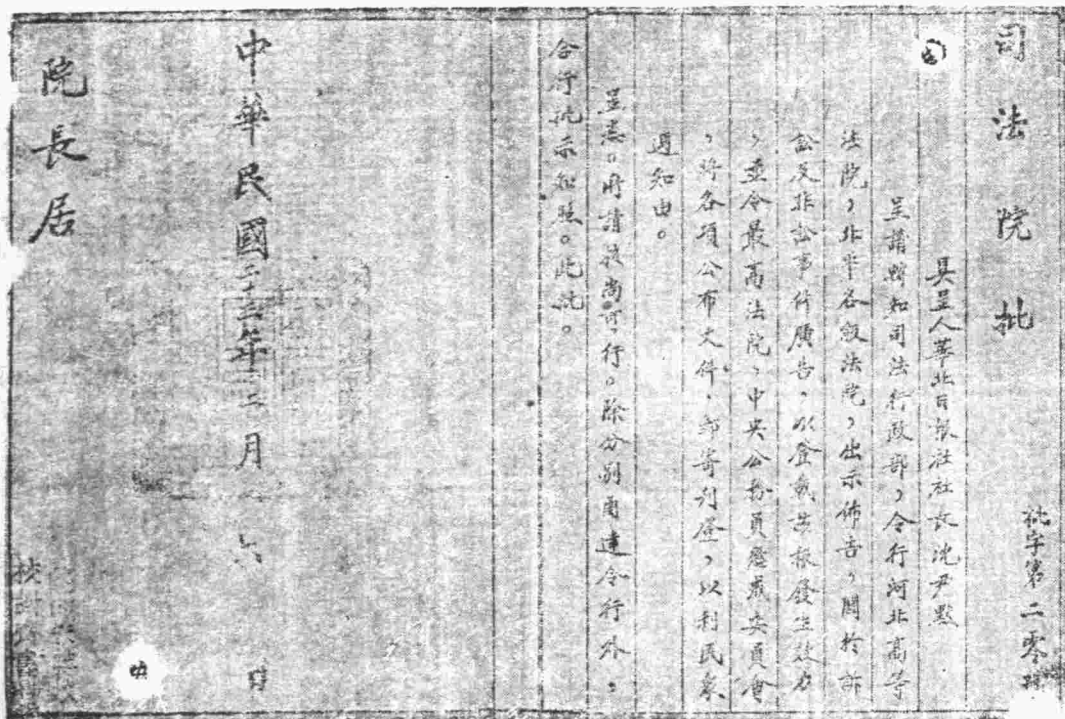 司法院批
批字第二零號
具呈人華北日報社社長沈尹默
呈請轉知司法行政部，令行河北高等
法院，北平各級法院，出示佈告，關於訴
訟及非訟事件廣告，以登載華報發生效力
，並令最高法院，中央公務員懲戒委員會
，將各項公布文件，郵寄刊登，以利民眾
週知由。
呈悉。所請核尚可行。除分別函達令行外，
合行批示知照。此批。
中華民國二十三年二月六日
院長居